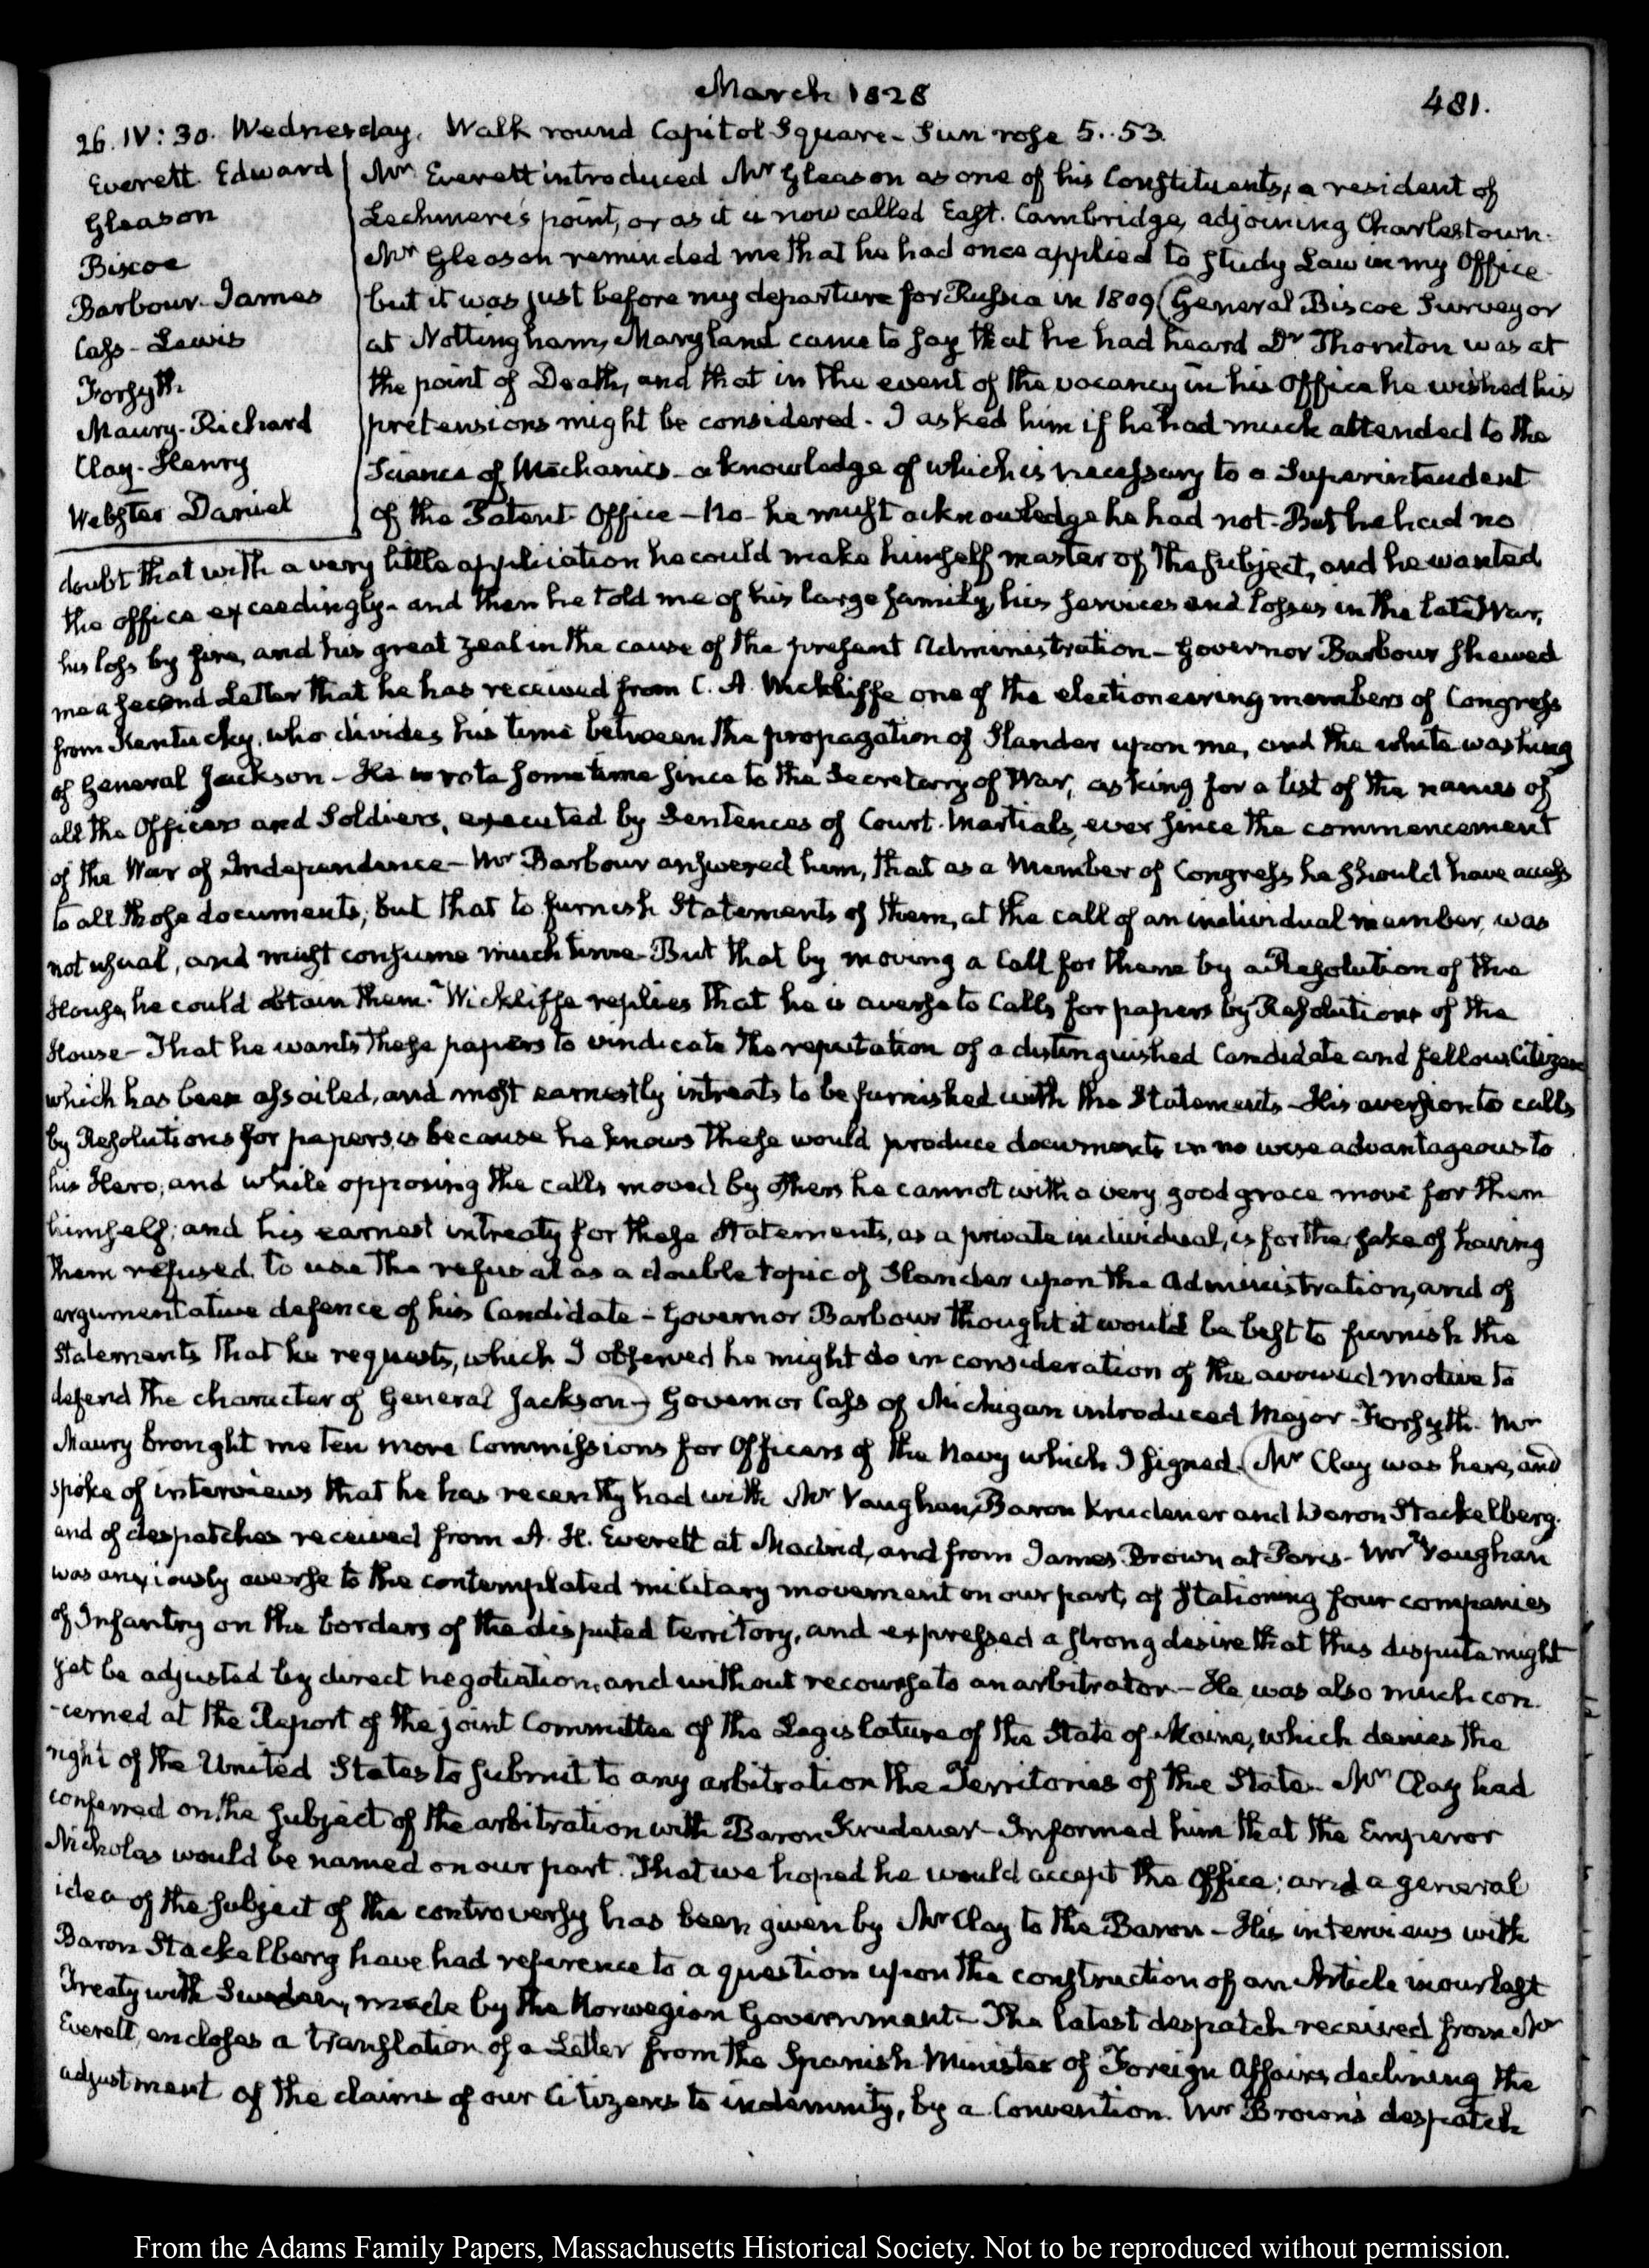 March 1828
481.
26. IV: 30. Wednesday. Walk round Capitol Square - Sun rose 5..53.
Everett Edward
Gleason
Biscoe
Barbour-James
Cass-Lewis
Forsyth
Maury-Richard
Clay-Henry
Webster Daniel
Mr Everett introduced Mr Gleason as one of his Constituents, a resident of
Lechmere's point, or as it is now called East-Cambridge, adjoining Charlestown.
Mr Gleason reminded me that he had once applied to study Law in my Office
but it was just before my departure for Russia in 1809 (General Biscoe Surveyor
at Nottingham, Maryland came to say that he had heard Dr Thornton was at
the point of Death, and that in the event of the vacancy in his Office he wished his
pretensions might be considered. I asked him if he had much attended to the
Science of Mechanics - a knowledge of which is necessary to a Superintendent
of the Patent Office - No - he must acknowledge he had not - But he had no
doubt that with a very little application he could make himself master of the subject, and he wanted
the office exceedingly - and then he told me of his large family, his services and losses in the late War,
his loss by fire, and his great zeal in the cause of the present Administration - Governor Barbour shewed
me a second Letter that he has received from C. A. Wickliffe one of the electioneering members of Congress
from Kentucky, who divides his time between the propagation of Slander upon me, and the white washing
of General Jackson - He wrote sometime since to the Secretary of War, asking for a list of the names of
all the Officers and Soldiers, executed by Sentences of Court-Martials, ever since the commencement
of the War of Independence - Mr Barbour answered him, that as a Member of Congress he should have access
to all those documents; but that to furnish Statements of them, at the call of an individual member, was
not usual, and must consume much time - But that by moving a Call for them by a Resolution of the
House, he could obtain them. Wickliffe replies that he is averse to Calls for papers by Resolutions of the
House - That he wants these papers to vindicate the reputation of a distinguished Candidate and fellow Citizen
which has been assailed, and most earnestly intreats to be furnished with the Statements - His aversion to calls
by Resolutions for papers, is because he knows these would produce documents in no wise advantageous to
his Hero; and while opposing the calls moved by others he cannot with a very good grace move for them
himself; and his earnest intreaty for these Statements, as a private individual, is for the sake of having
them refused, to use the refusal as a double topic of Slander upon the Administration, and of
argumentative defence of his Candidate - Governor Barbour thought it would be best to furnish the
Statements that he requests, which I observed he might do in consideration of the avowed motive to
defend the character of General Jackson - Governor Cass of Michigan introduced Major Forsyth. Mr
Maury brought me ten more Commissions for Officers of the Navy which I signed. (Mr Clay was here, and
spoke of interviews that he has recently had with Mr Vaughan, Baron Krudener and Baron Stackelberg.
and of despatches received from A. H. Everett at Madrid, and from James Brown at Paris - Mr Vaughan
was anxiously averse to the contemplated military movement on our part, of stationing four companies
of Infantry on the borders of the disputed territory, and expressed a strong desire that this dispute might
yet be adjusted by direct negotiation, and without recourse to an arbitrator - He was also much con-
-cerned at the Report of the joint Committee of the Legislature of the State of Maine, which denies the
right of the United States to submit to any arbitration the Territories of the State - Mr Clay had
conferred on the subject of the arbitration with Baron Krudener - Informed him that the Emperor
Nicholas would be named on our part. That we hoped he would accept the Office; and a general
idea of the subject of the controversy has been given by Mr Clay to the Baron - His interviews with
Baron Stackelberg have had reference to a question upon the construction of an Article in our last
Treaty with Sweden, made by the Norwegian Government - The latest despatch received from Mr
Everett, encloses a translation of a Letter from the Spanish Minister of Foreign Affairs, declining the
adjustment of the claims of our Citizens to indemnity, by a Convention. Mr Brown's despatch
From the Adams Family Papers, Massachusetts Historical Society. Not to be reproduced without permission.